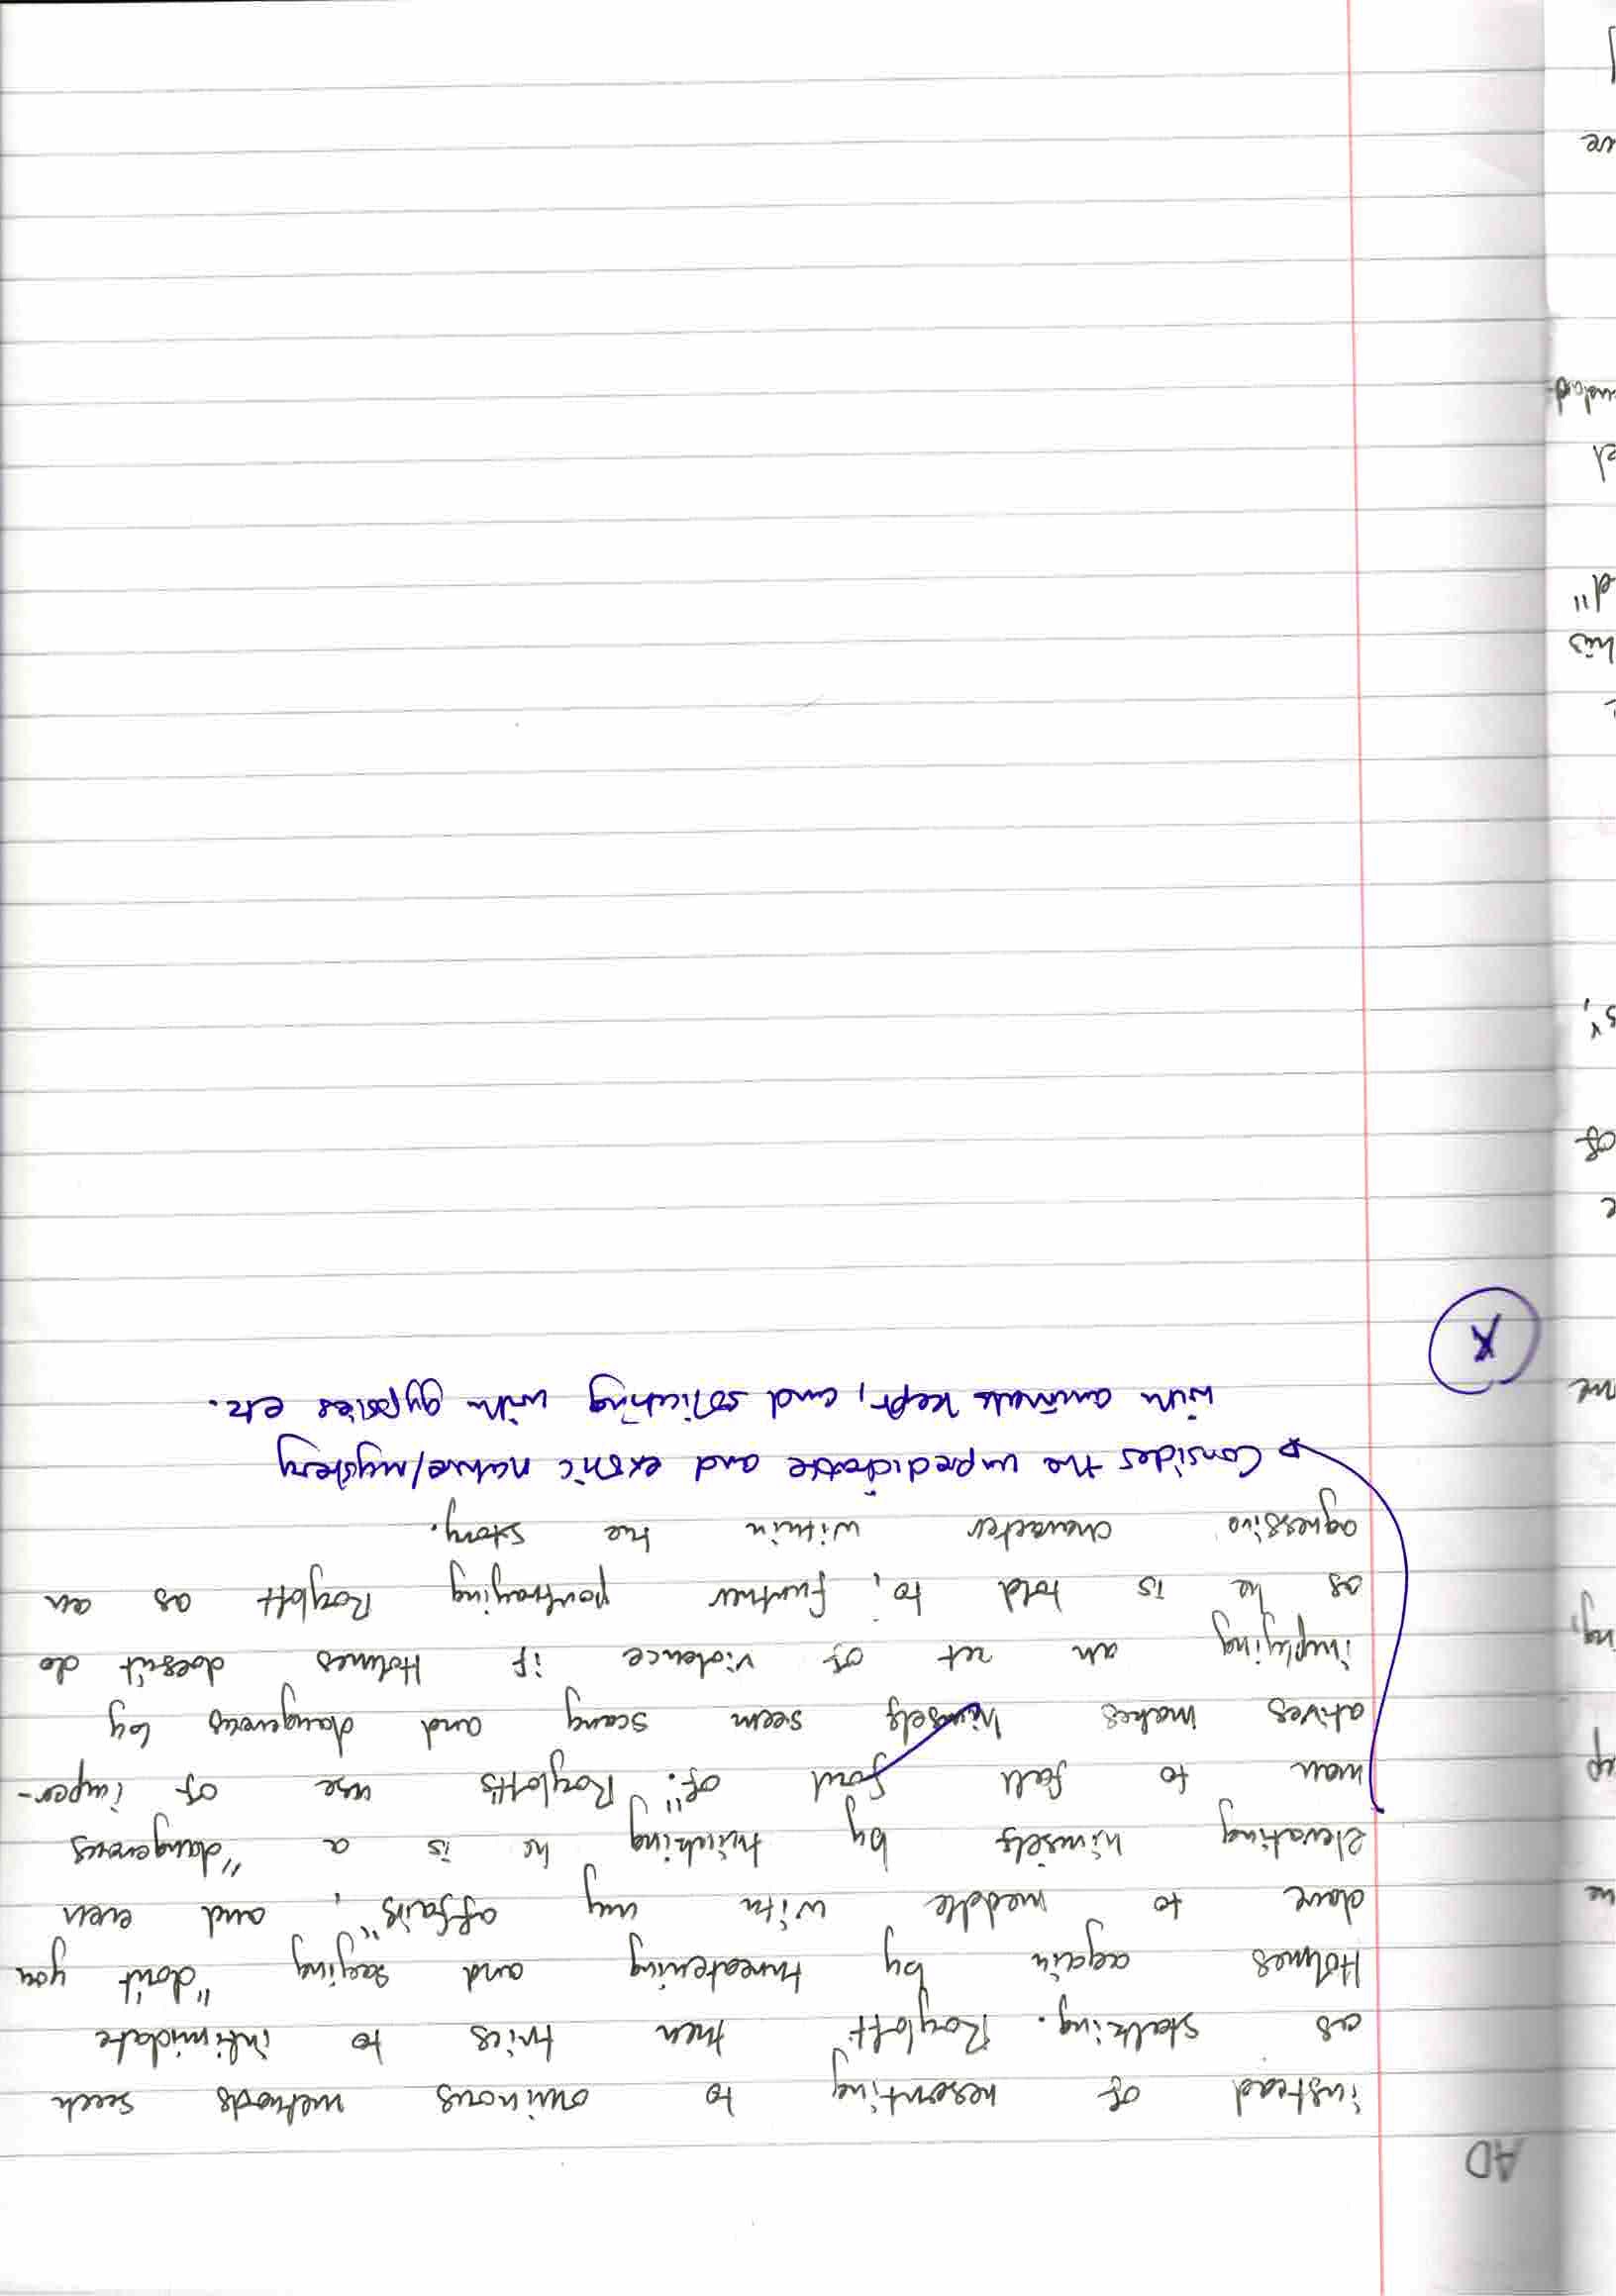 AD
instead of resorting to ominous methods such
as stalking. Roylott then tries to intimidate
Holmes again by threatening and saying "don't you
dare to meddle with my affairs", and even
elevating himself by thinking he is a "dangerous
man to fall foul of". Roylott's use of imper-
atives makes himself seem scary and dangerous by
implying an act of violence if Holmes doesn't do
as he is told to, further portraying Roylott as an
agressive character within the story.
Consider the unpredictable and exotic nature/mystery
with animals kept, and soliciting with gypsies etc.
X